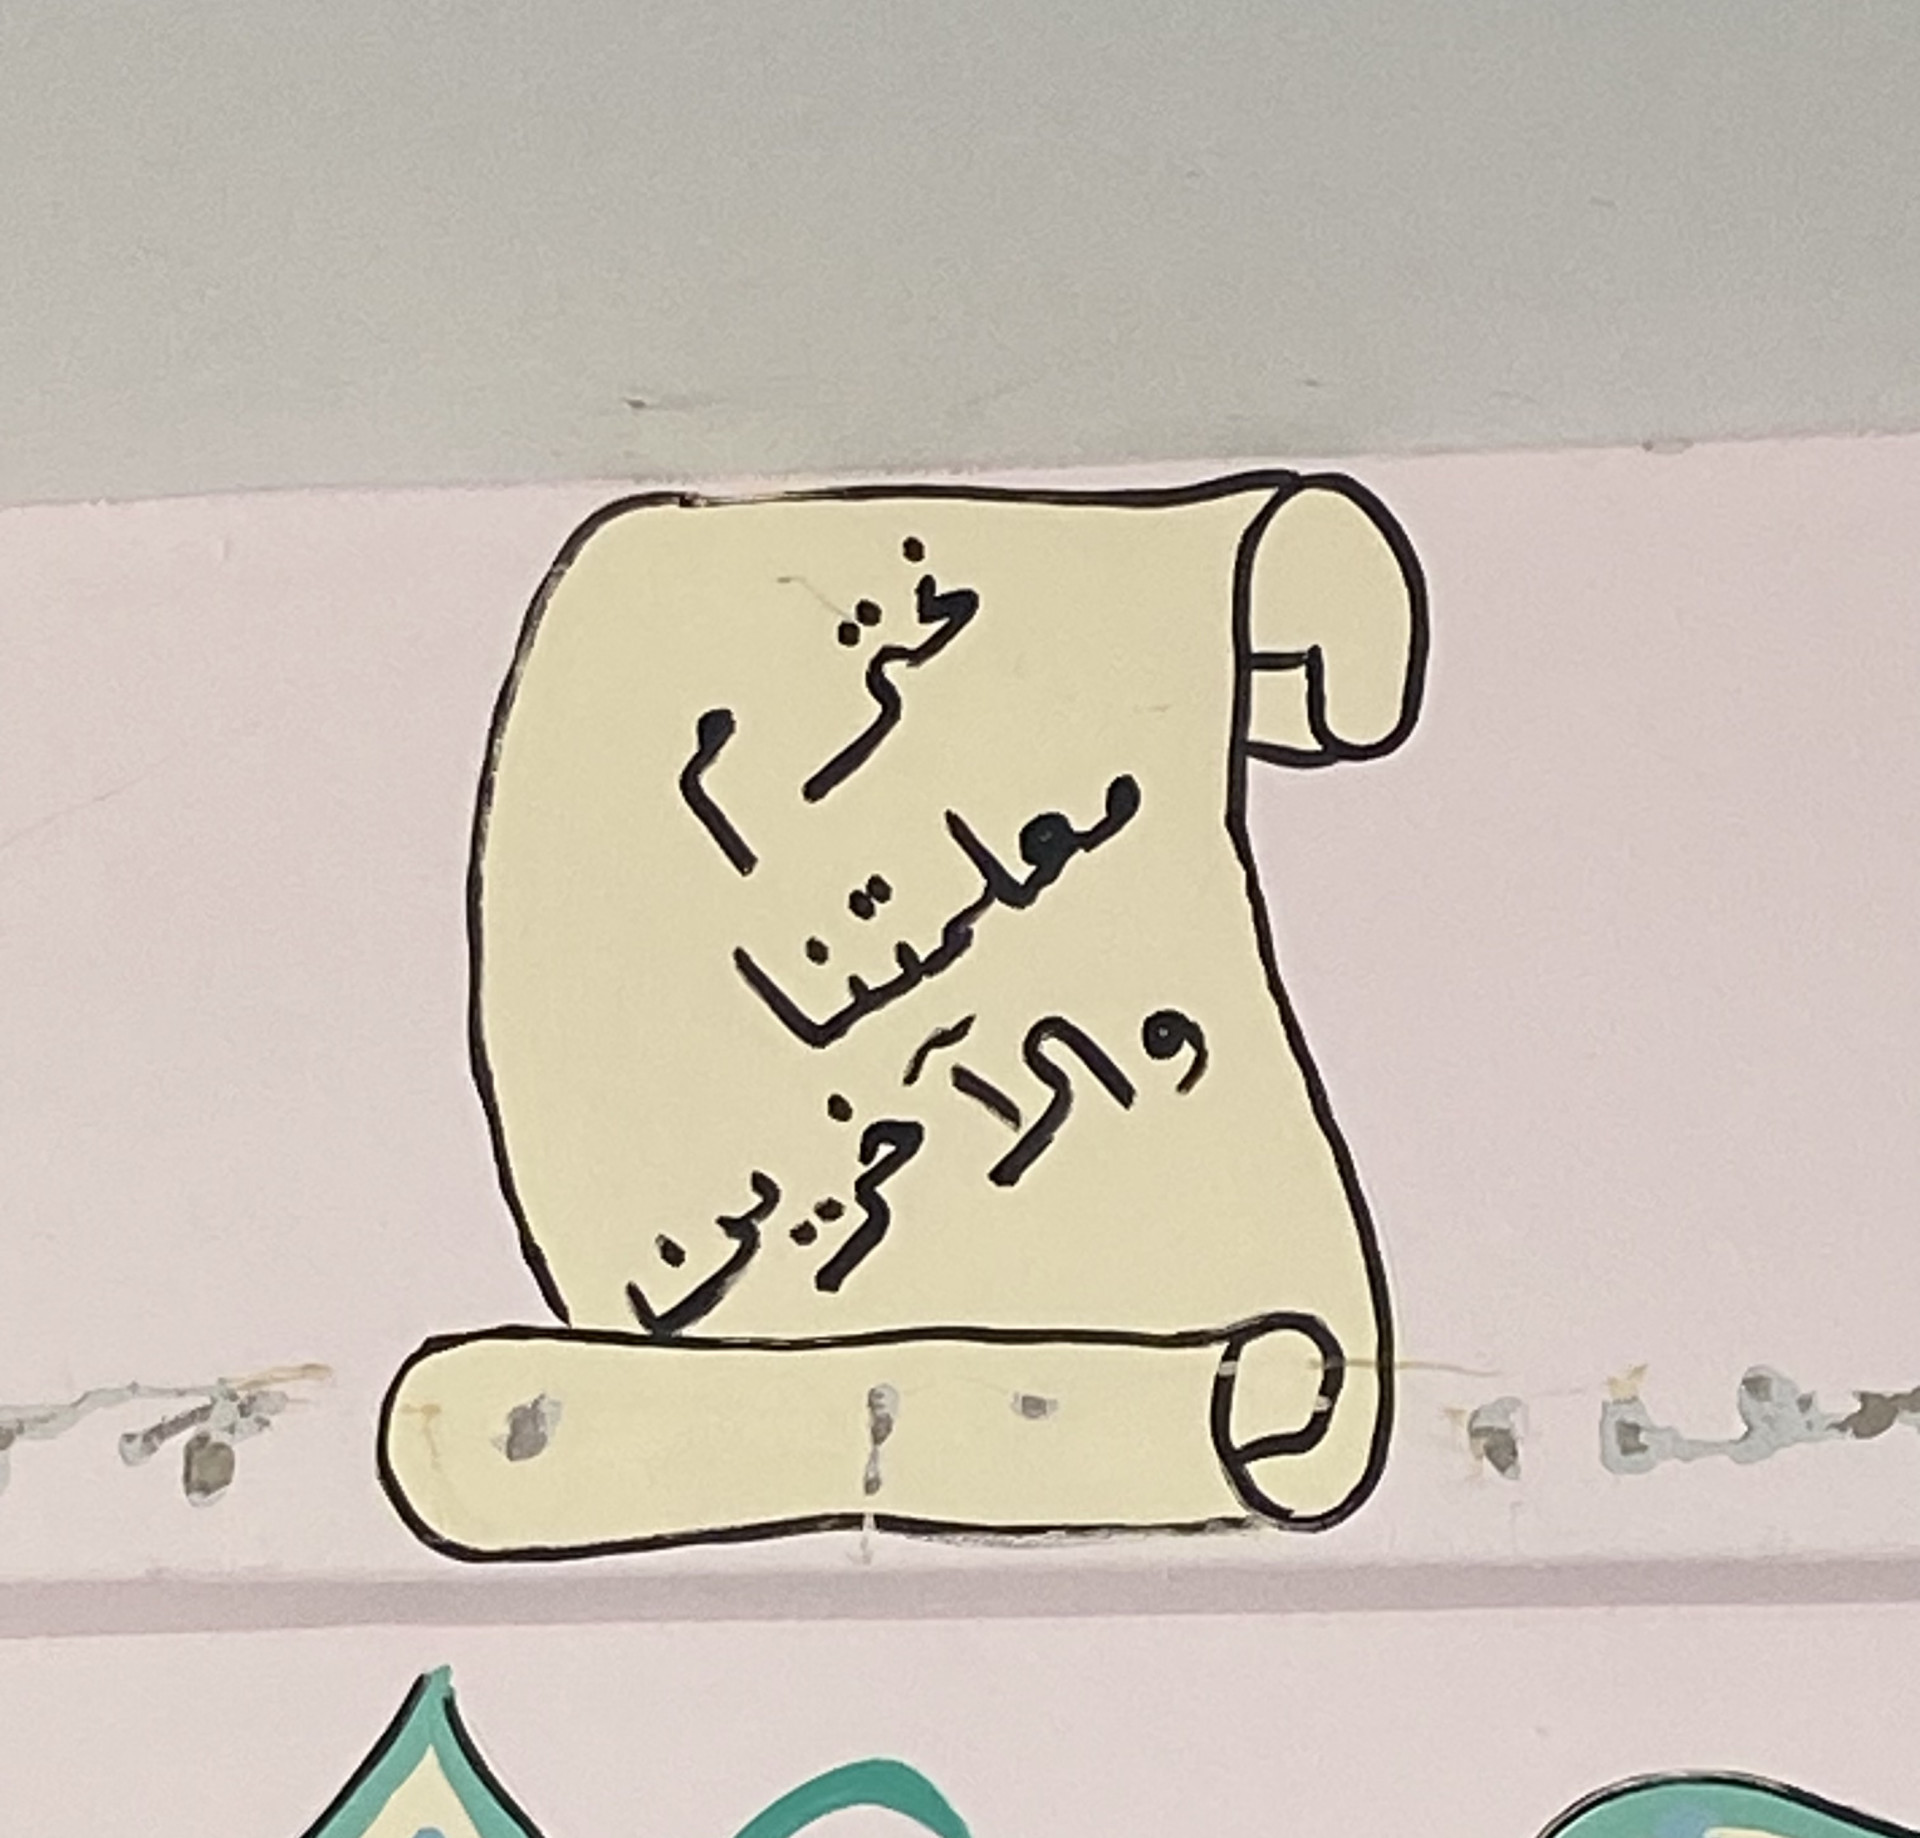 نحترم
معلمتنا
والآخرين